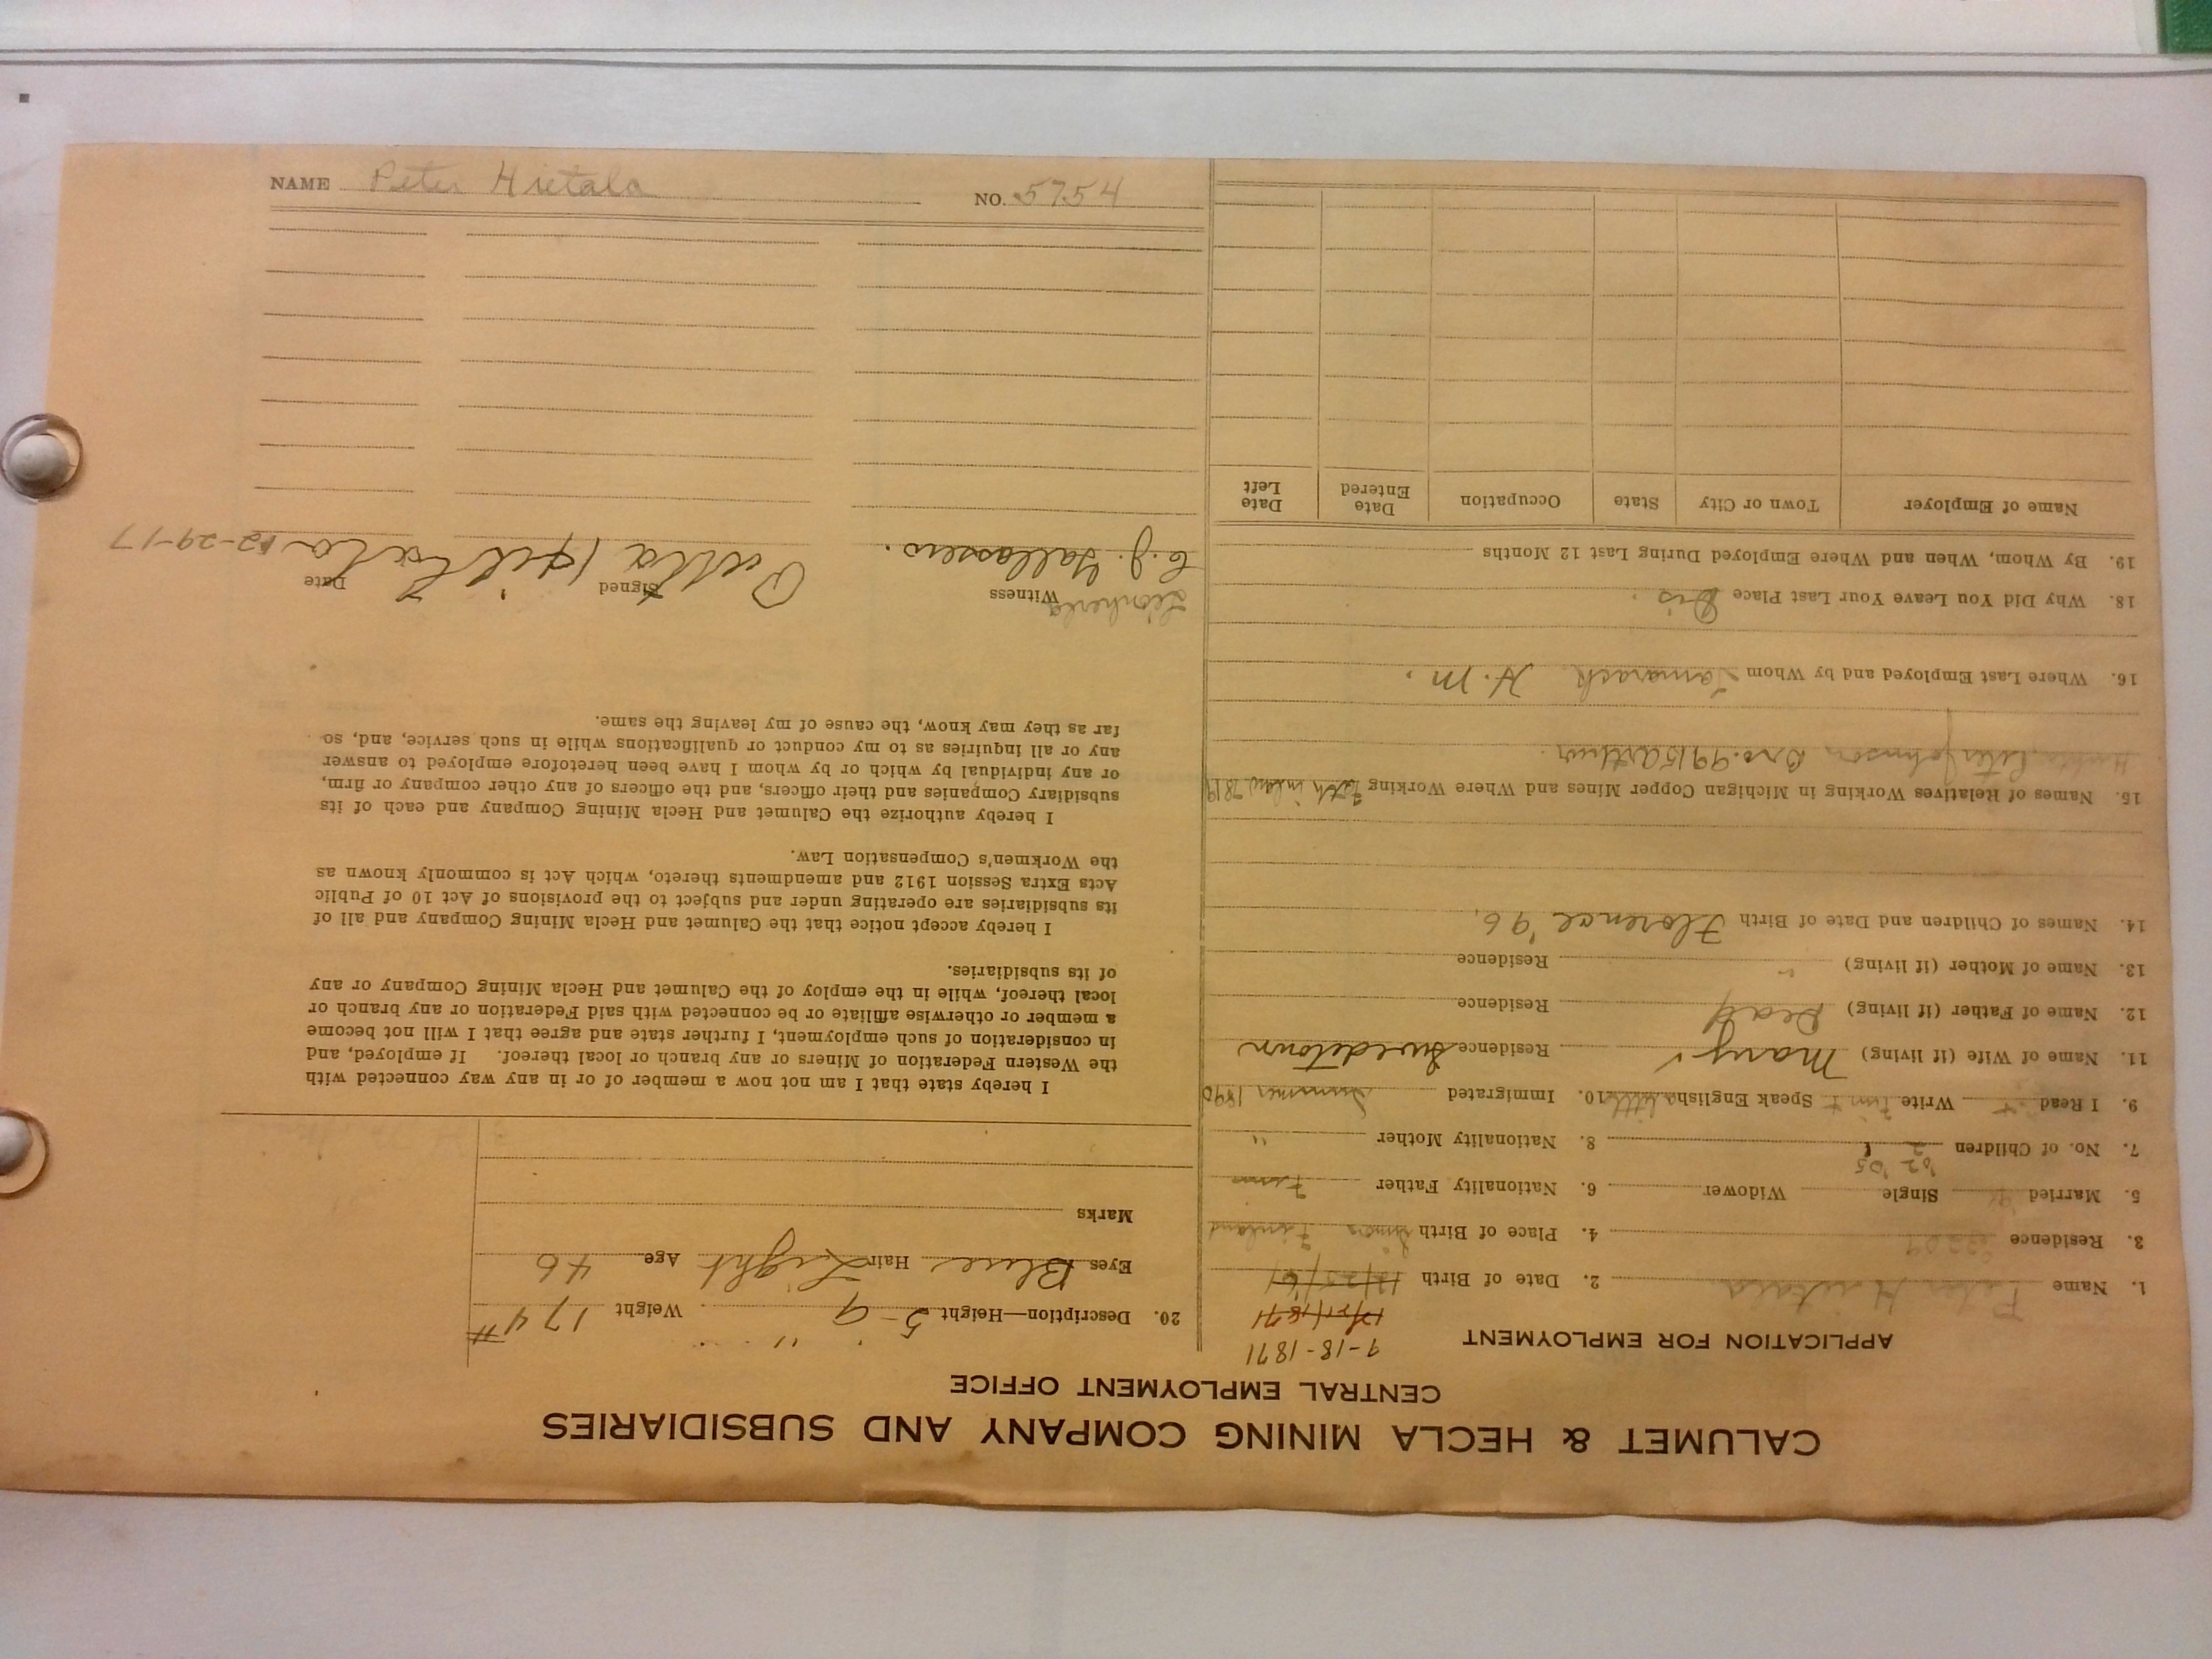 CALUMET & HECLA MINING COMPANY AND SUBSIDIARIES
CENTRAL EMPLOYMENT OFFICE
APPLICATION FOR EMPLOYMENT
9-18-1871
1. Name Peter Hietala 2. Date of Birth
3. Residence 4. Place of Birth Finland
5. Married Single Widower 6. Nationality Father Finn
'02 '05
7. No. of Children 2 8. Nationality Mother "
9. I Read Write Finn Speak English a little 10. Immigrated Summer 1890
11. Name of Wife (if living) Mary Residence Swedetown
12. Name of Father (if living) Dead Residence
13. Name of Mother (if living) Residence
14. Names of Children and Date of Birth Florence '96
15. Names of Relatives Working in Michigan Copper Mines and Where Working
Peter Johnson Bro. 9915 Arthur.
16. Where Last Employed and by Whom Tamarack. H. M.
18. Why Did You Leave Your Last Place Dis.
19. By Whom, When and Where Employed During Last 12 Months
Name of Employer Town or City State Occupation Date Entered Date Left
20. Description—Height 5-9" Weight 174#
Eyes Blue Hair Light Age 46
Marks
I hereby state that I am not now a member of or in any way connected with
the Western Federation of Miners or any branch or local thereof. If employed, and
in consideration of such employment, I further state and agree that I will not become
a member or otherwise affiliate or be connected with said Federation or any branch or
local thereof, while in the employ of the Calumet and Hecla Mining Company or any
of its subsidiaries.
I hereby accept notice that the Calumet and Hecla Mining Company and all of
its subsidiaries are operating under and subject to the provisions of Act 10 of Public
Acts Extra Session 1912 and amendments thereto, which Act is commonly known as
the Workmen's Compensation Law.
I hereby authorize the Calumet and Hecla Mining Company and each of its
subsidiary Companies and their officers, and the officers of any other company or firm,
or any individual by which or by whom I have been heretofore employed to answer
any or all inquiries as to my conduct or qualifications while in such service, and, so
far as they may know, the cause of my leaving the same.
Witness Signed Date
C. J. Hietala 12-29-17
NAME Peter Hietala NO. 5754